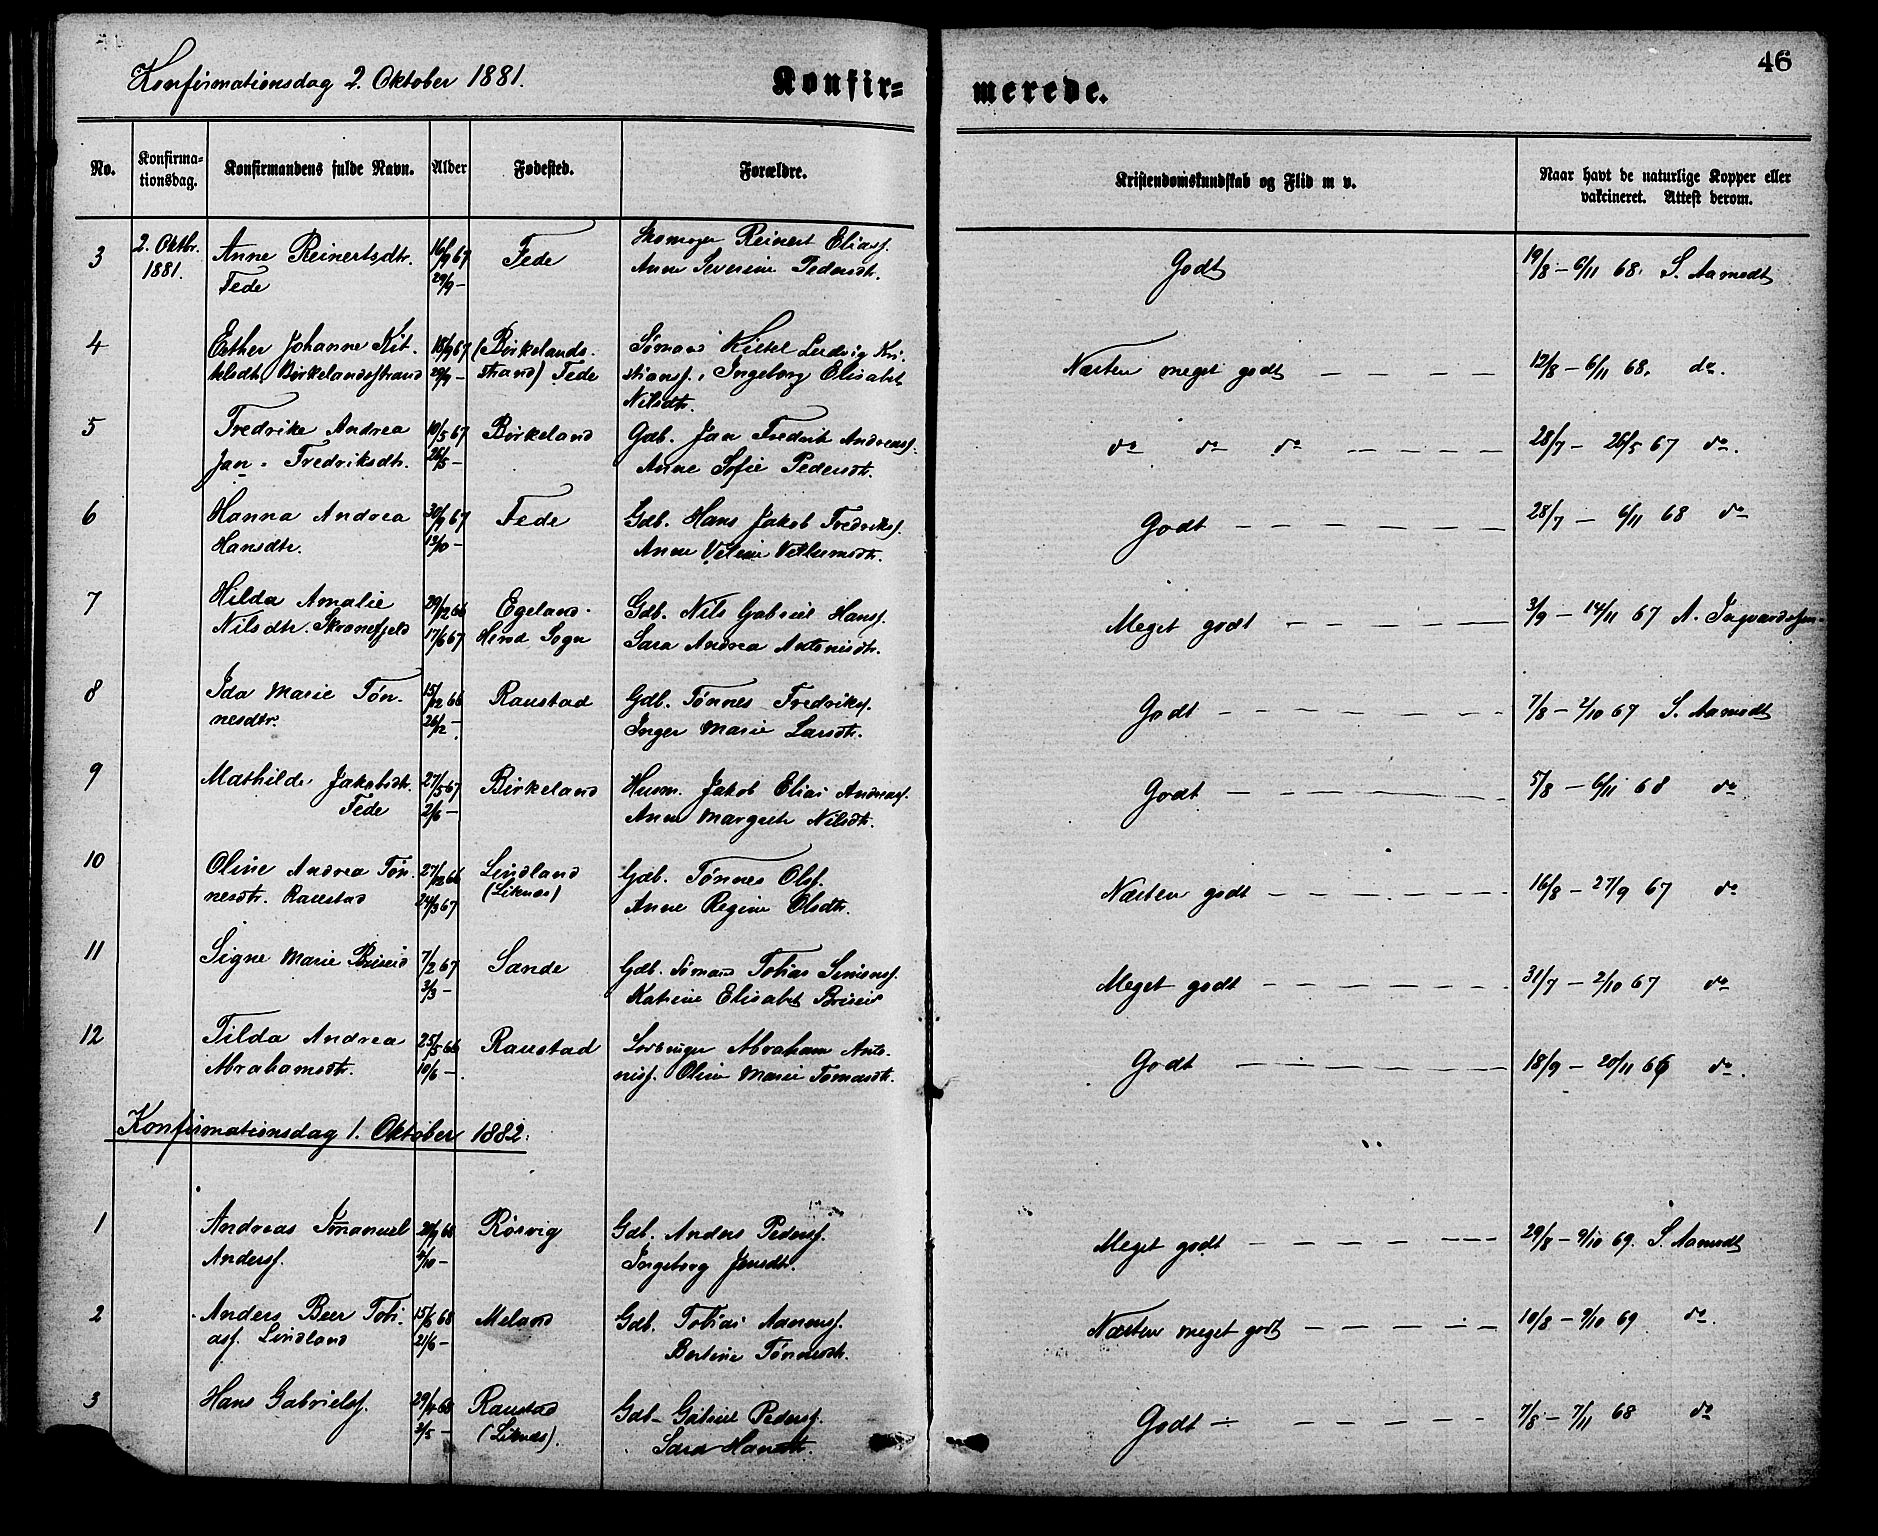 Konfirmationsdag 2. Oktober 1881.
Konfir=
merede.
46
No.
Konfirma-
tionsdag.
Konfirmandens fulde Navn.
Alder
Fødested.
Forældre.
Kristendomskundskab og Flid m v.
Naar havt de naturlige Kopper eller
vakcineret. Attest derom.
3 2. Oktbr. Anne Reinertsdtr. 16/9 67 Fede Skomager Reinert Eliasf. Godt 19/8 – 6/11 68. S. Aamodt
1881. Fede 29/9 – Anne Severine Pedersdtr.
4 Esther Johanne Kit- 18/9 67 (Birkelands- Sømand Kittel Ludvig Kri- Næsten meget godt 12/8 – 6/11 68. do.
telsdtr. Birkelandsstrand 29/9 – strand) Fede stiansf., Ingeborg Elisabet
Nilsdtr.
5 Fredrike Andrea 10/5 67 Birkeland Gdb. Jan Fredrik Andreasf. do do do 28/7 – 26/5 67 do.
Jan-Fredriksdtr. 26/5 – Anne Sofie Pedersdtr.
6 Hanna Andrea 30/9 67 Fede Gdb. Hans Jakob Fredriksf. Godt 28/7 – 6/11 68 do
Hansdtr. 13/10 – Anne Veline Villumsdtr.
7 Hilda Amalie 29/12 66 Egeland- Gdb. Nils Gabriel Hansf. Meget godt 3/9 – 14/11 67 A. Ingvardsen
Nilsdtr. 17/6 67 Hind Sogn Sara Andrea Antonisdtr.
8 Ida Marie Tøn- 15/12 66 Raustad Gdb. Tønnes Fredriksf. Godt 7/8 – 2/10 67 S. Aamodt
nesdtr. 26/12 – Inger Marie Larsdtr.
9 Mathilde Jakobsdtr. 27/5 67 Birkeland Husm. Jakob Elias Andreasf. Godt 5/8 – 6/11 68 do
Fede 2/6 – Anne Margrete Nilsdtr.
10 Oline Andrea Tøn- 27/12 66 Lindland Gdb. Tønnes Olsf. Næsten godt 16/8 – 27/9 67 do
nesdtr. Raustad 24/3 67 (Liknes) Anne Regine Olsdtr.
11 Signe Marie Briseid 7/2 67 Sande Gdb. Sømand Tobias Simonsf. Meget godt 31/7 – 2/10 67 do
3/3 – Katrine Elisabet Briseid
12 Tilda Andrea 25/5 66 Raustad Abraham Anto- Godt 18/9 – 20/11 66 do.
Abrahamsdtr. 10/6 – nisf. Oline Marie Tomasdtr.
Konfirmationsdag 1. Oktober 1882.
1 Andreas Imanuel 20/9 68 Røsvig Gdb. Anders Pedersf. Meget godt 29/8 – 9/10 69. S. Aamodt
Andersf. 4/10 – Ingeborg Jensdtr.
2 Anders Beer Tobi- 15/6 68 Meland Gdb. Tobias Aanensf. Næsten meget godt 10/8 – 9/10 69 do.
asf. Lindland 21/6 – Bertine Tønnesdtr.
3 Hans Gabrielsf. 29/4 68 Raustad Gdb. Gabriel Pedersf. Godt 7/8 – 7/11 68 do
3/5 – (Liknes). Sara Hansdtr.